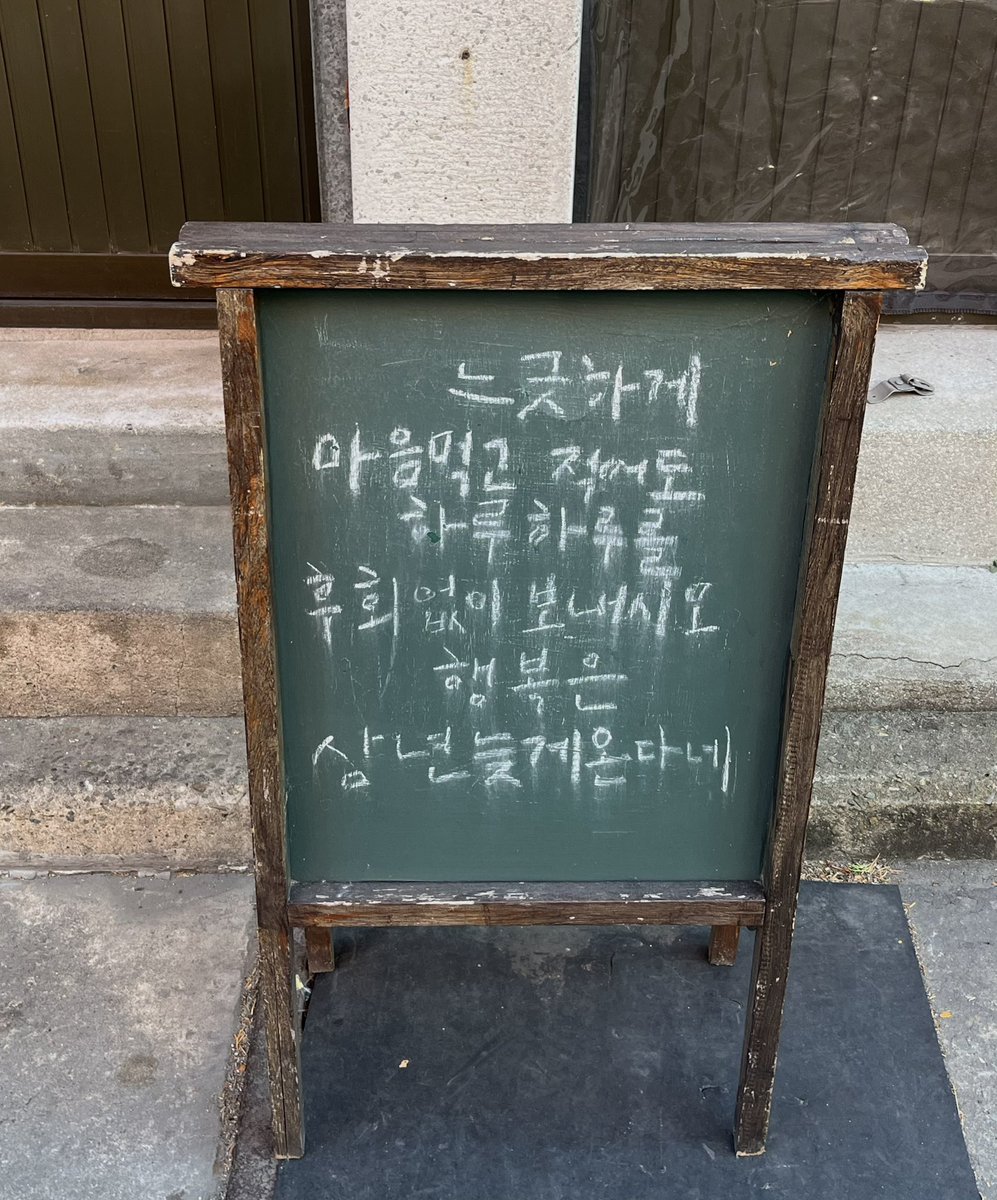 느긋하게
마음먹고 적어도
하루하루를
후회없이 보내시오
행복은
삼년늦게온다네